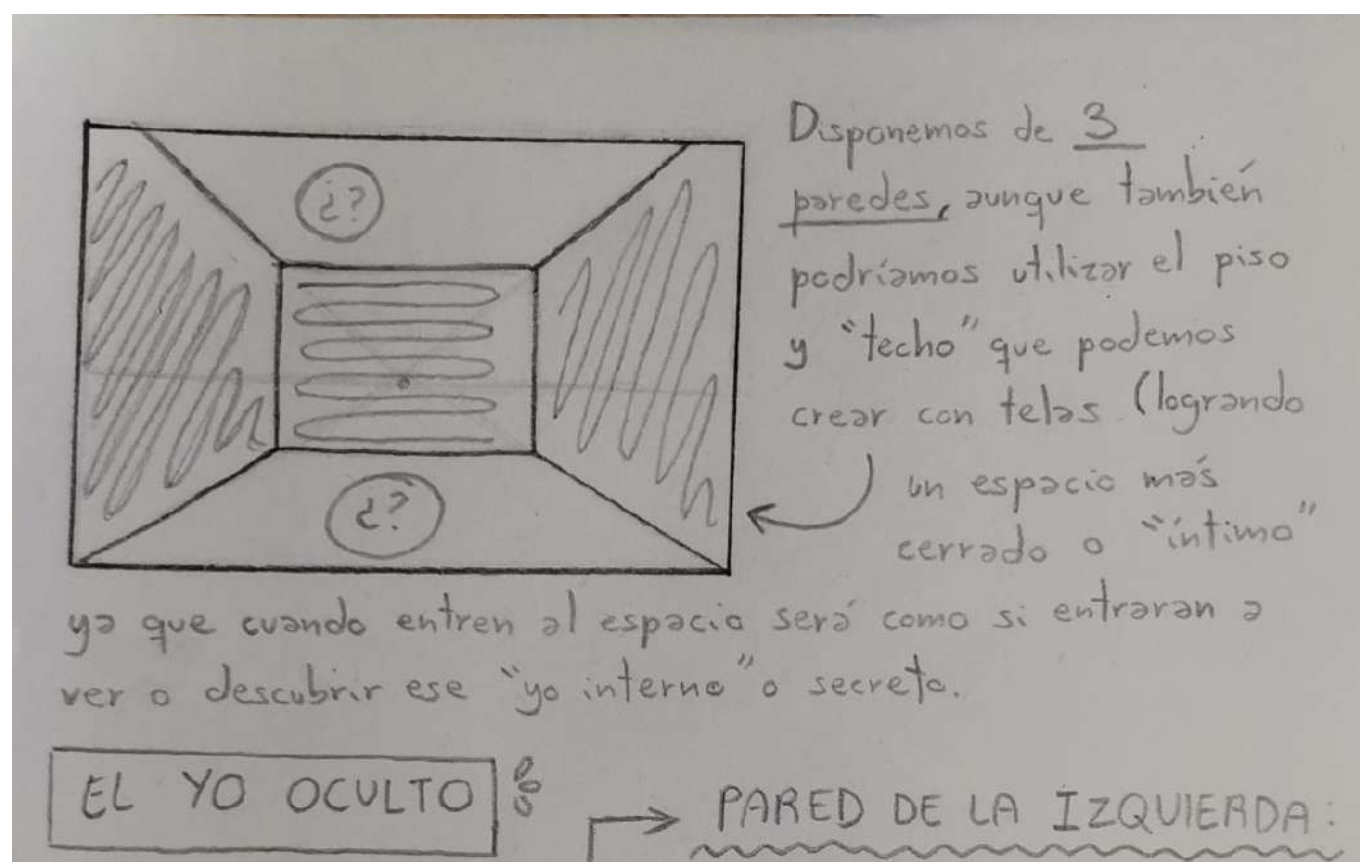 ¿?
¿?
Disponemos de 3
paredes, aunque también
podríamos utilizar el piso
y "techo" que podemos
crear con telas (logrando
un espacio más
cerrado o "íntimo"
ya que cuando entren al espacio será como si entraran a
ver o descubrir ese "yo interno" o secreto.
EL YO OCULTO
PARED DE LA IZQUIERDA: